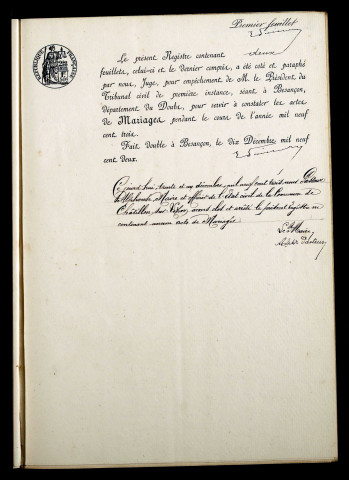 Premier feuillet
Le présent Registre contenant deux
feuillets, celui-ci et le dernier compris, a été coté et paraphé
par nous, Juge, pour empêchement de M. le Président du
Tribunal civil de première instance, séant à Besançon,
département du Doubs, pour servir à constater les actes
de Mariages pendant le cours de l'année mil neuf
cent trois.
Fait double à Besançon, le dix Décembre mil neuf
cent deux.
Ce jourd'hui trente et un décembre mil neuf cent trois, nous
Maire et officier de l'état civil de la Commune de
Châtillon sur avons clos et arrêté le présent registre ne
contenant aucun acte de Mariages
Le Maire,